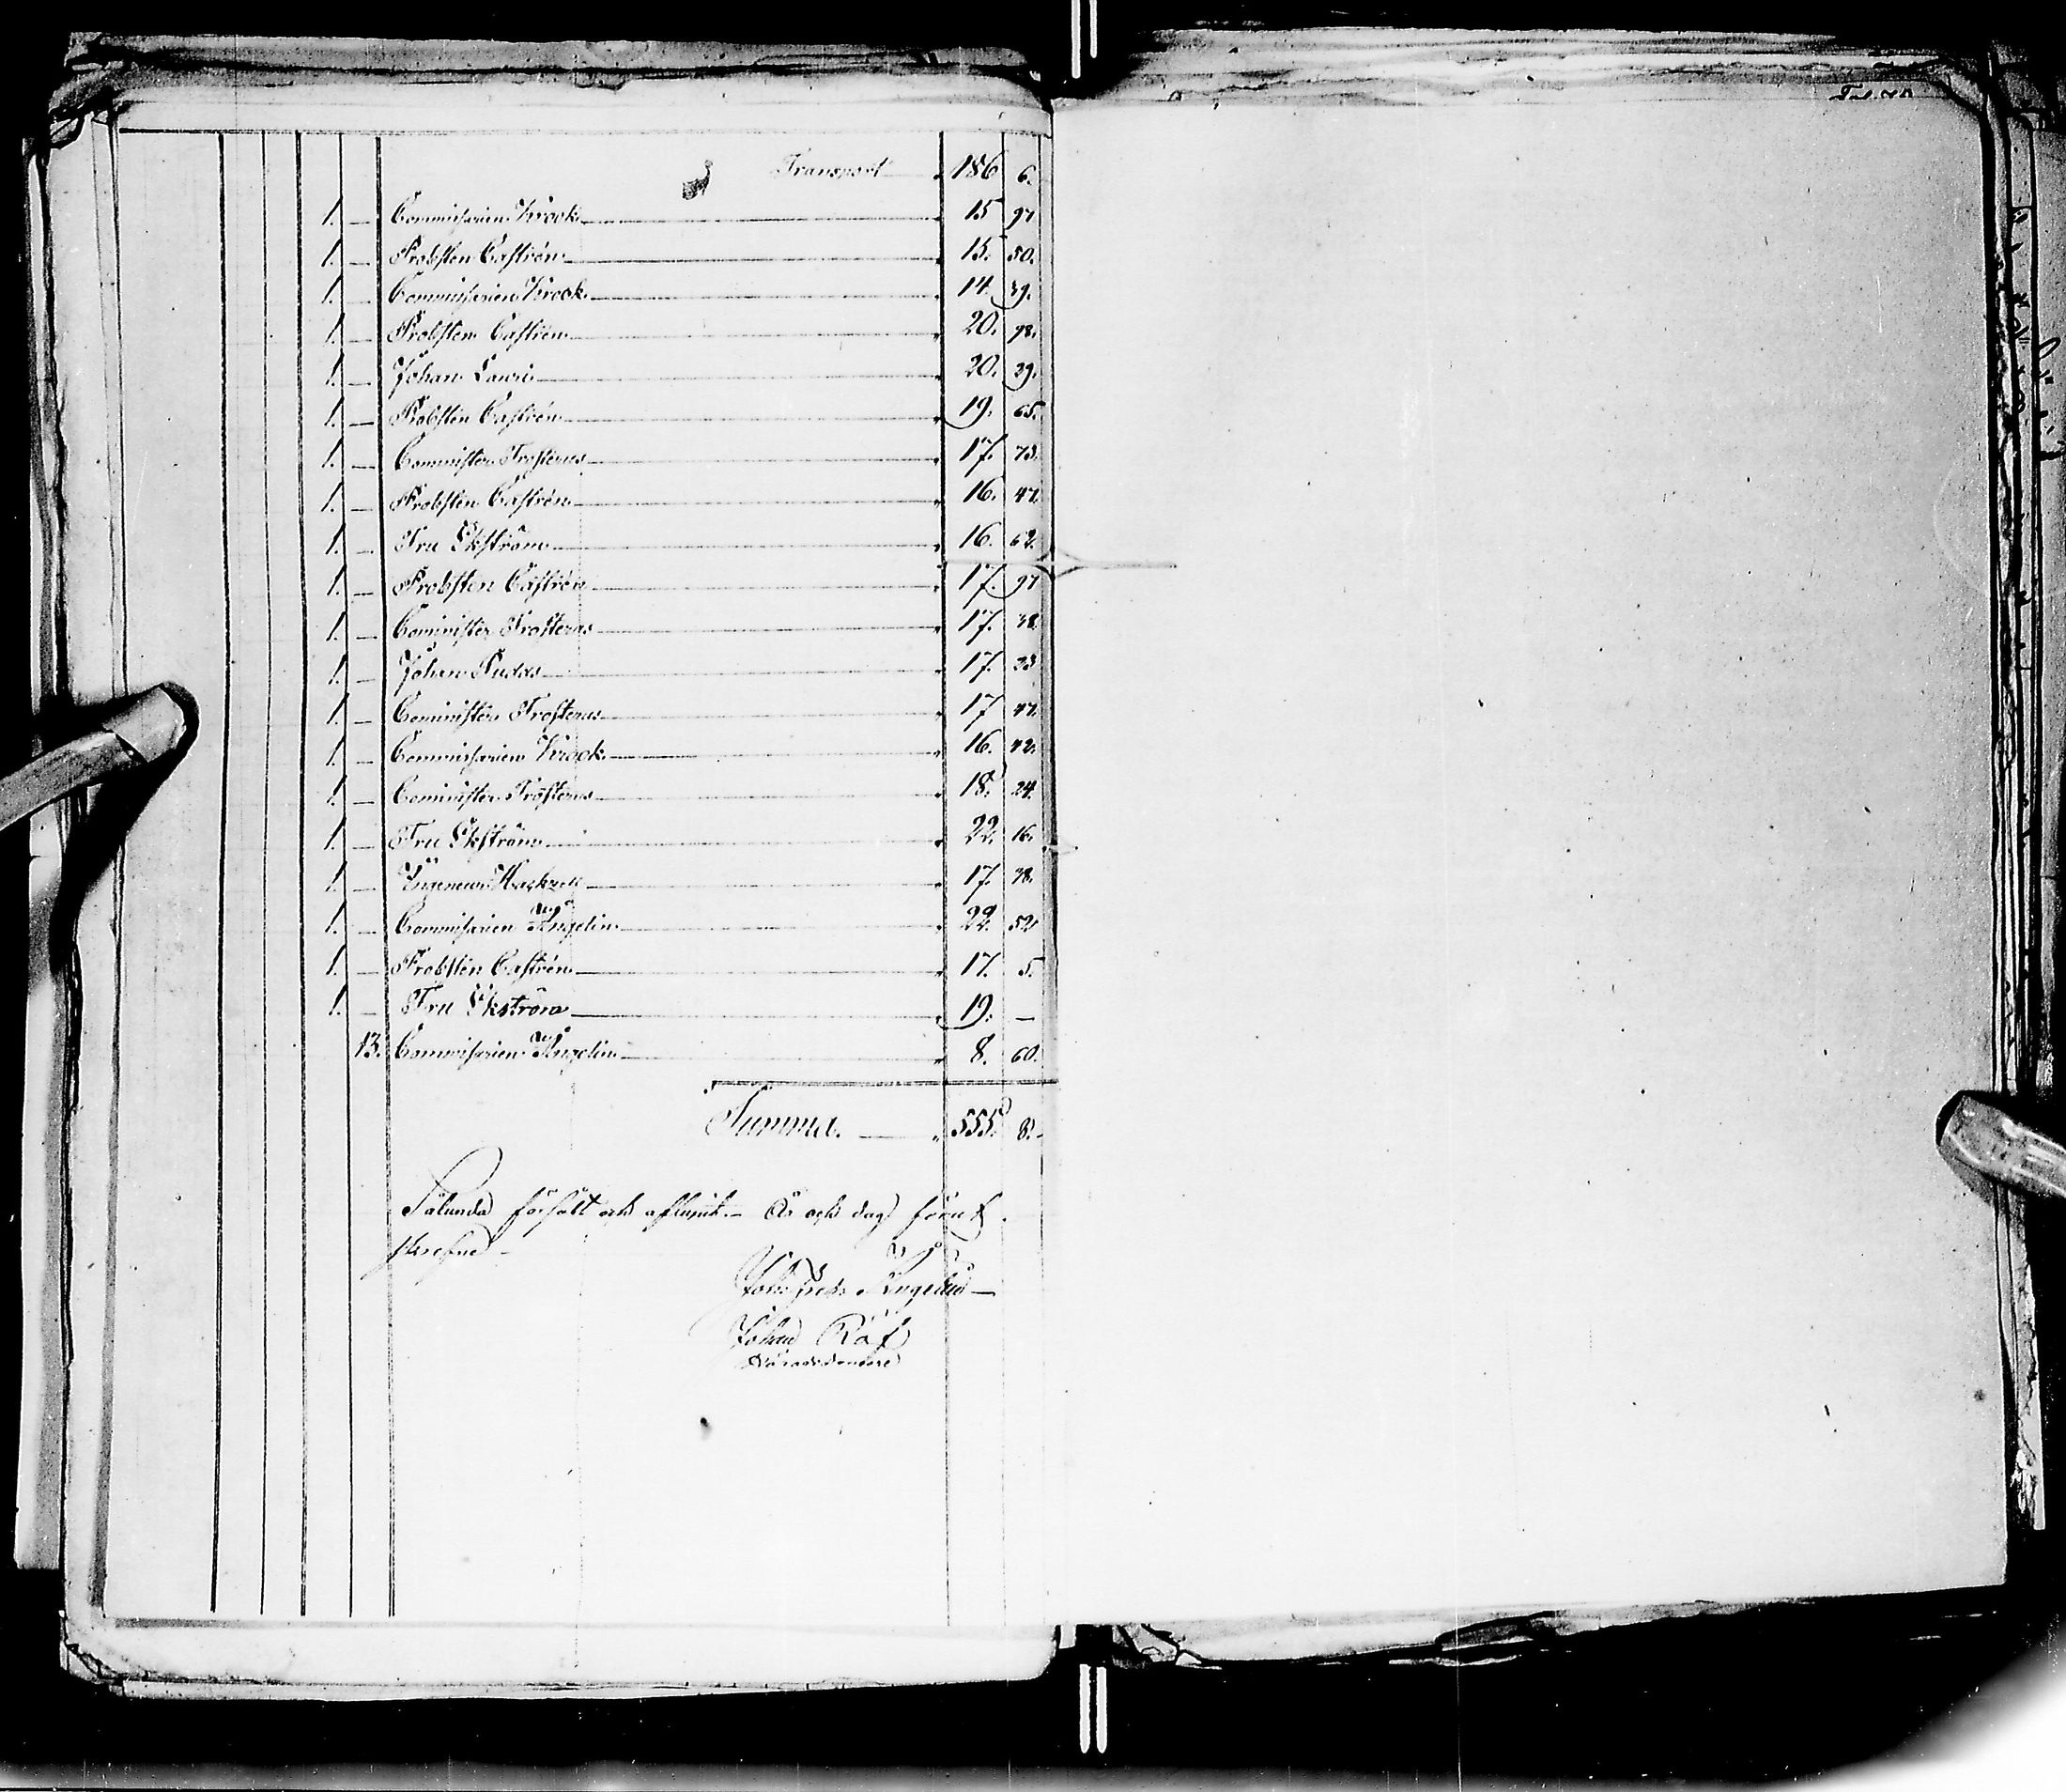 Transport 186 6.
1. — Commissarien Krook 15 97
1. — Probsten Castrén 15. 50.
1. — Commissarien Krook 14. 39.
1. — Probsten Castrén 20. 98.
1. — Johan Lauri 20. 39.
1. — Probsten Castrén 19. 65.
1. — Comminister Frosterus 17. 73.
1. — Probsten Castrén 16. 47.
1. — Fru Ekström 16. 62.
1. — Probsten Castrén 17. 97
1. — Cominister Frosterus 17. 38.
1. — Johan Pudas 17. 23
1. — Cominister Frosterus 17 47.
1. — Commissarien Krook 16. 42.
1. — Cominister Frosterus 18. 24.
1. — Fru Ekström 22. 16.
1. — Ingeneur Hackzell 17. 38.
1. — Commissarien Ångelin 22. 52.
1. — Probsten Castrén 17. 5.
1. — Fru Ekström 19. —
13. Commissarien Ångelin 8. 60.
Summa. — 555. 8.
Sålunda och År och dag förut
skrefne
Ångelin
Johan Räf
Häradsdomare